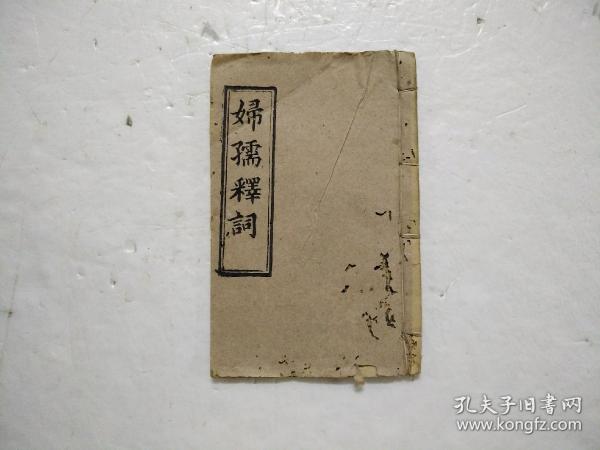 婦孺釋詞
孔夫子旧书网
www.kongfz.com